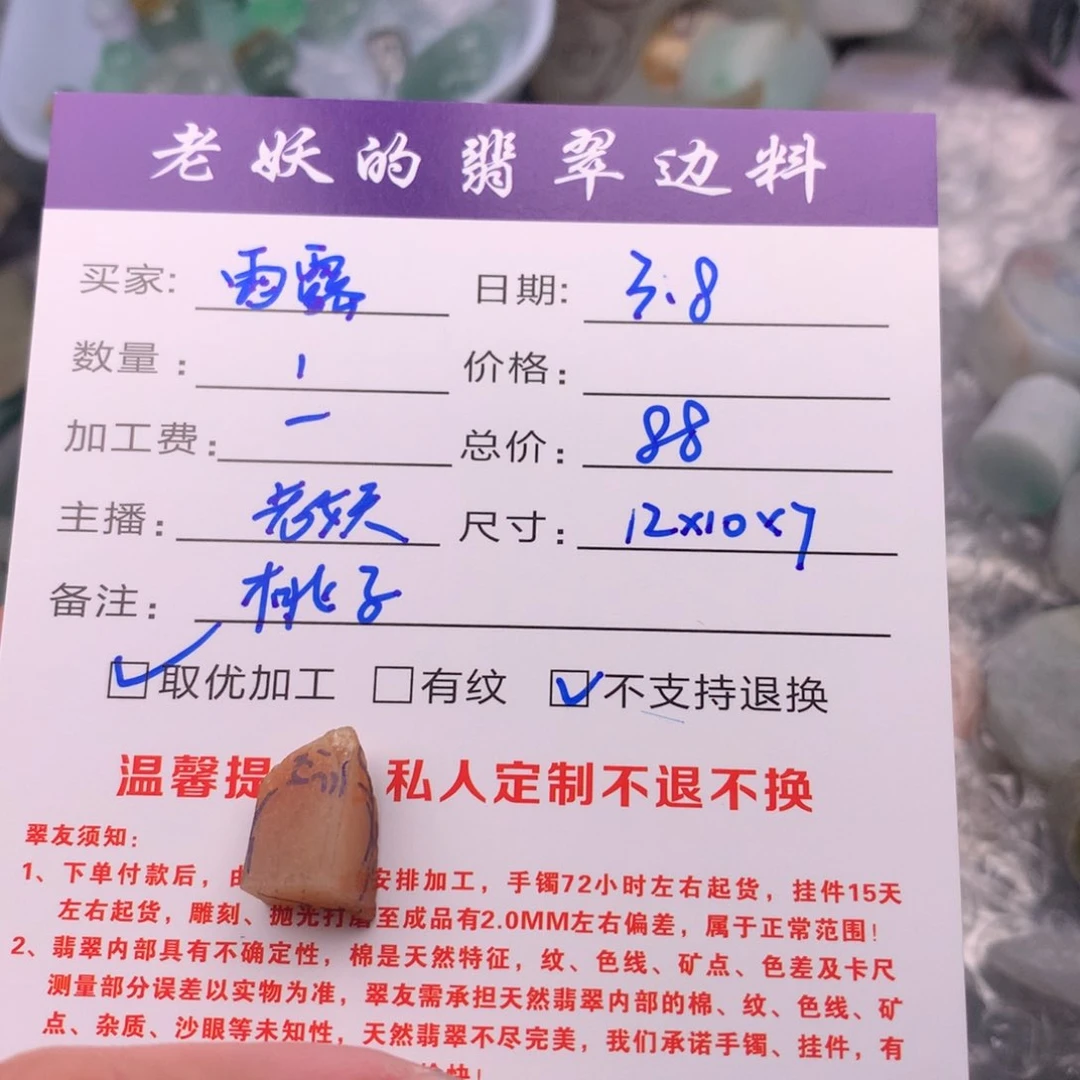 老妖的翡翠边料
买家: 雨露 日期: 3.8
数量: 1 价格:
加工费: 一 总价: 88
主播: 老妖 尺寸: 12x10x7
备注: 桃子
取优加工 有纹 不支持退换
温馨提 私人定制不退不换
翠友须知:
1、下单付款后, 安排加工, 手镯72小时左右起货, 挂件15天
左右起货, 雕刻、抛光打磨至成品有2.0MM左右偏差, 属于正常范围!
2、翡翠内部具有不确定性, 棉是天然特征, 纹、色线、矿点、色差及卡尺
测量部分误差以实物为准, 翠友需承担天然翡翠内部的棉、纹、色线、矿
点、杂质、沙眼等未知性, 天然翡翠不尽完美, 我们承诺手镯、挂件, 有